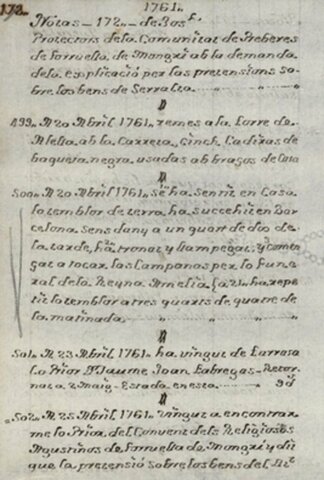 172
1761
Notas - 172 - de Josf.
Protectors de la Comunitat de Preberes
de Torruella de Mongri ab la demanda
de la explicació per las pretensions so-
bre los bens de Serralta
499 A 20 Abril 1761 remes a la Torre de
ab la Carreta, sinch Cadiras de
baqueta negra usadas ab brasos de
500 A 20 Abril 1761 se ha sentit en Casa
lo temblor de terra, ha succehit en Bar-
celona sens dany a un quart de dos de
la tarde, ha tronat y llampegat, y comen-
çat a tocar las Campanas per lo fune-
ral de la Reyna Amelia, ha repe-
tit lo temblor a tres quarts de quatre de
la matinada
501 A 23 Abril 1761 ha vingut de
lo Prior Dn. Jaume Joan Fabregas - Retor-
na a 2 Maig - Estada en esta 9 d
502 A 25 Abril 1761 vingut a encontrar
me lo Prior del Convent dels Religiosos
Agustinos de Torruella de Mongri y dit
que la pretensió sobre los bens del